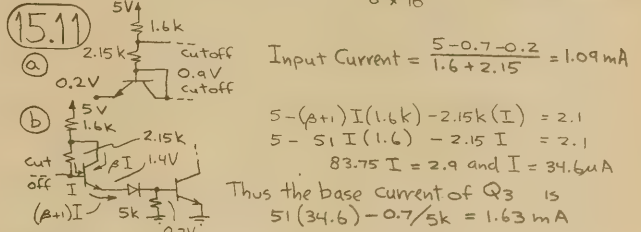 15.11
a
5V
1.6k
2.15k
cutoff
0.9V
cutoff
0.2V
Input Current = (5-0.7-0.2)/(1.6+2.15) = 1.09 mA
b
5V
1.6k
2.15k
cut
off
βI
1.4V
I
(β+1)I
5k
5-(β+1)I(1.6k)-2.15k(I) = 2.1
5- 51 I(1.6) -2.15 I = 2.1
83.75 I = 2.9 and I = 34.6μA
Thus the base current of Q3 is
51(34.6)-0.7/5k = 1.63 mA